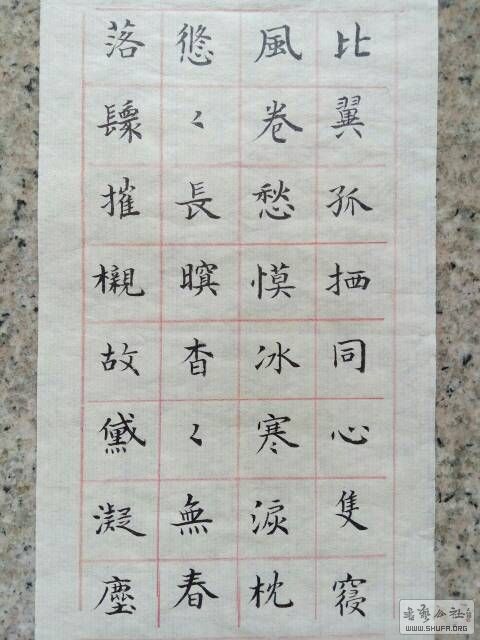 比翼孤栖同心隻寢
風卷愁慔冰寒淚枕
悠々長暝杳々無春
落鬟摧櫬故黛凝塵
书艺公社
WWW.SHUFA.ORG